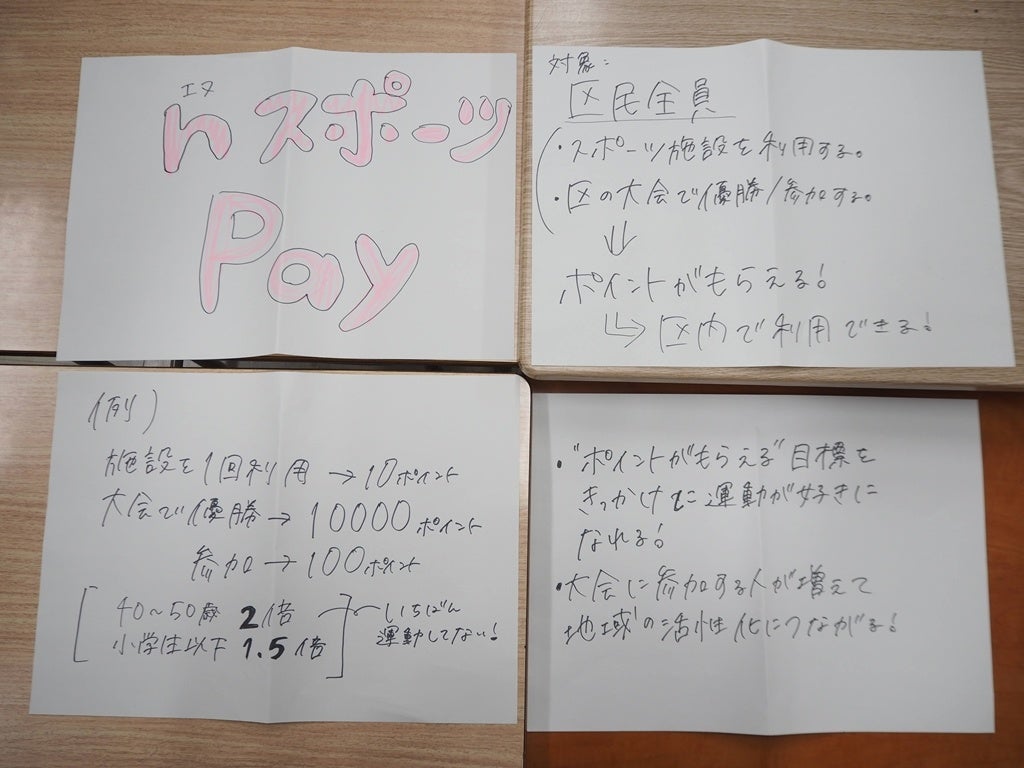 エヌ
nスポーツ
Pay
対象：
区民全員
・スポーツ施設を利用する。
・区の大会で優勝/参加する。
↓
ポイントがもらえる！
↳区内で利用できる！
（例）
施設を1回利用→10ポイント
大会で優勝→10000ポイント
参加→100ポイント
40〜50歳 2倍
小学生以下 1.5倍
いちばん
運動してない！
・"ポイントがもらえる"目標を
きっかけに運動が好きに
なれる！
・大会に参加する人が増えて
地域の活性化につながる！